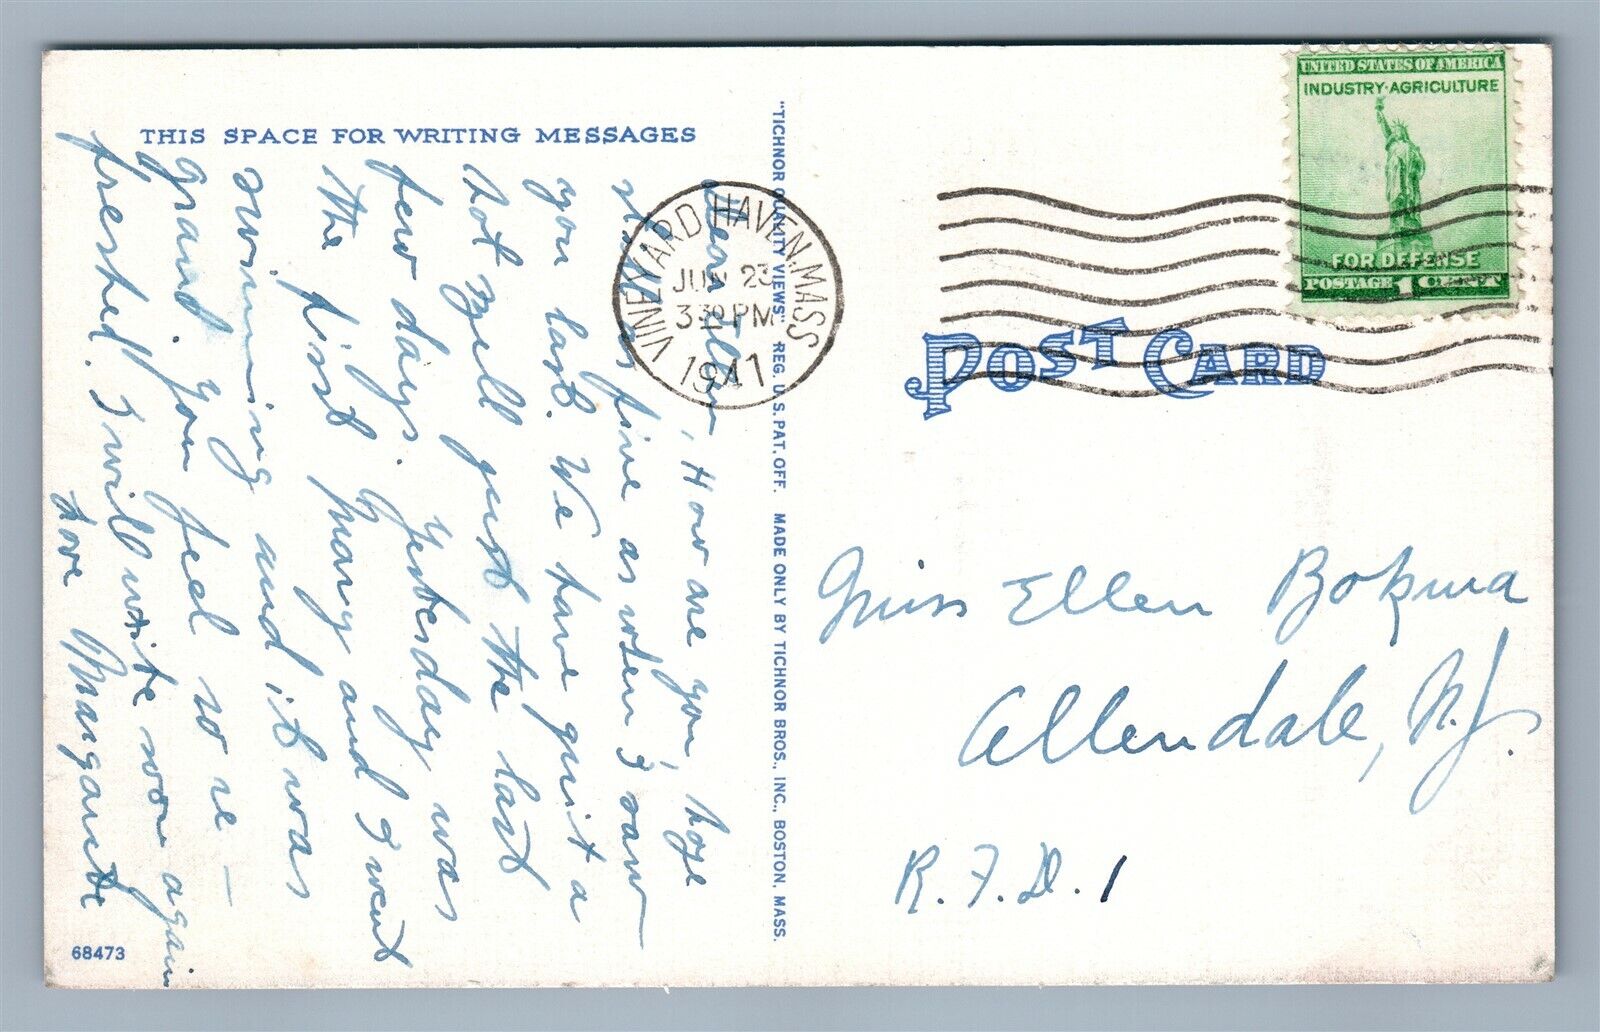 THIS SPACE FOR WRITING MESSAGES
Dear Ellen, How are you, hope
still as fine as when I saw
you last. We have quit a
few days. Yesterday was
hot yell just the last
the first Mary and I went
swimming and it was
grand. You feel so re-
freshed. I will write soon again
Love Margarete
68473
"TICHNOR QUALITY VIEWS" REG. U. S. PAT. OFF. MADE ONLY BY TICHNOR BROS., INC., BOSTON, MASS.
VINEYARD HAVEN, MASS
JUN 23
3 30 PM
1941
UNITED STATES OF AMERICA
INDUSTRY·AGRICULTURE
FOR DEFENSE
POSTAGE 1 CENT
POST CARD
Miss Ellen Bokma
Allendale, N.J.
R.F.D. 1